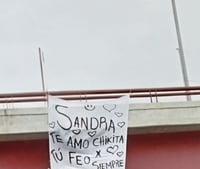 SANDRA
TE AMO CHIKITA
TÚ FEO X SIEMPRE